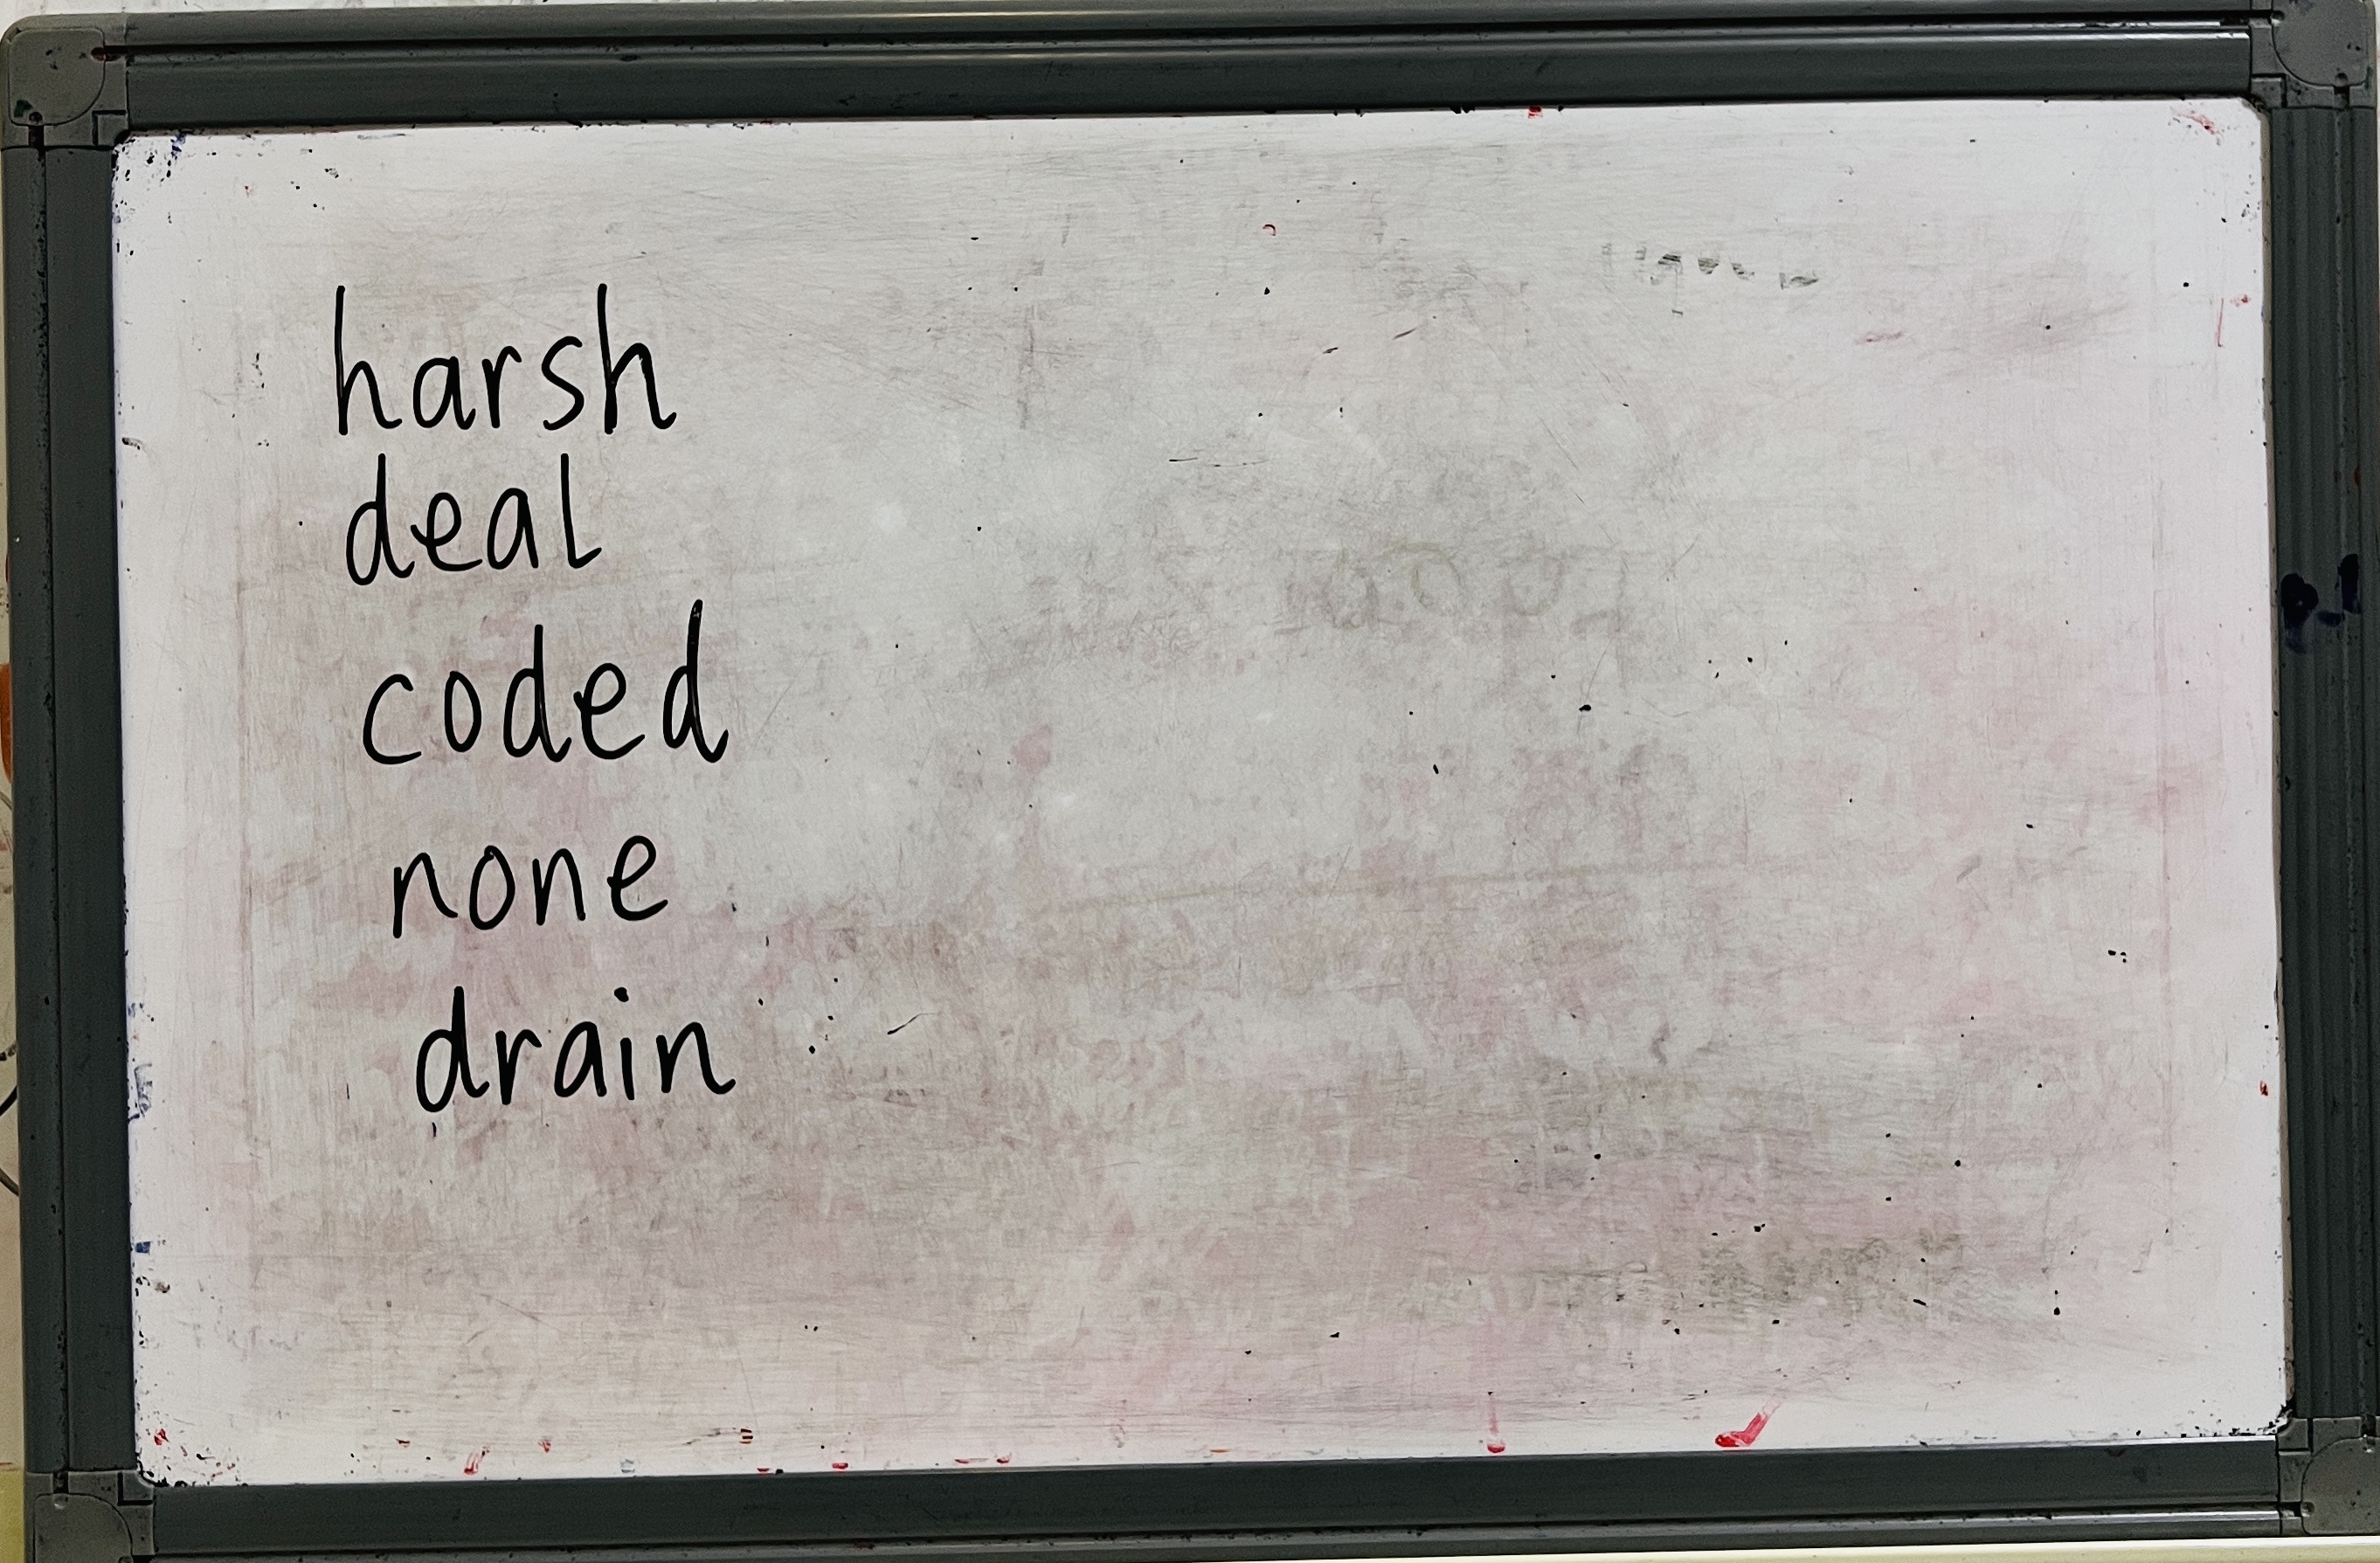 harsh
deal
coded
none
drain